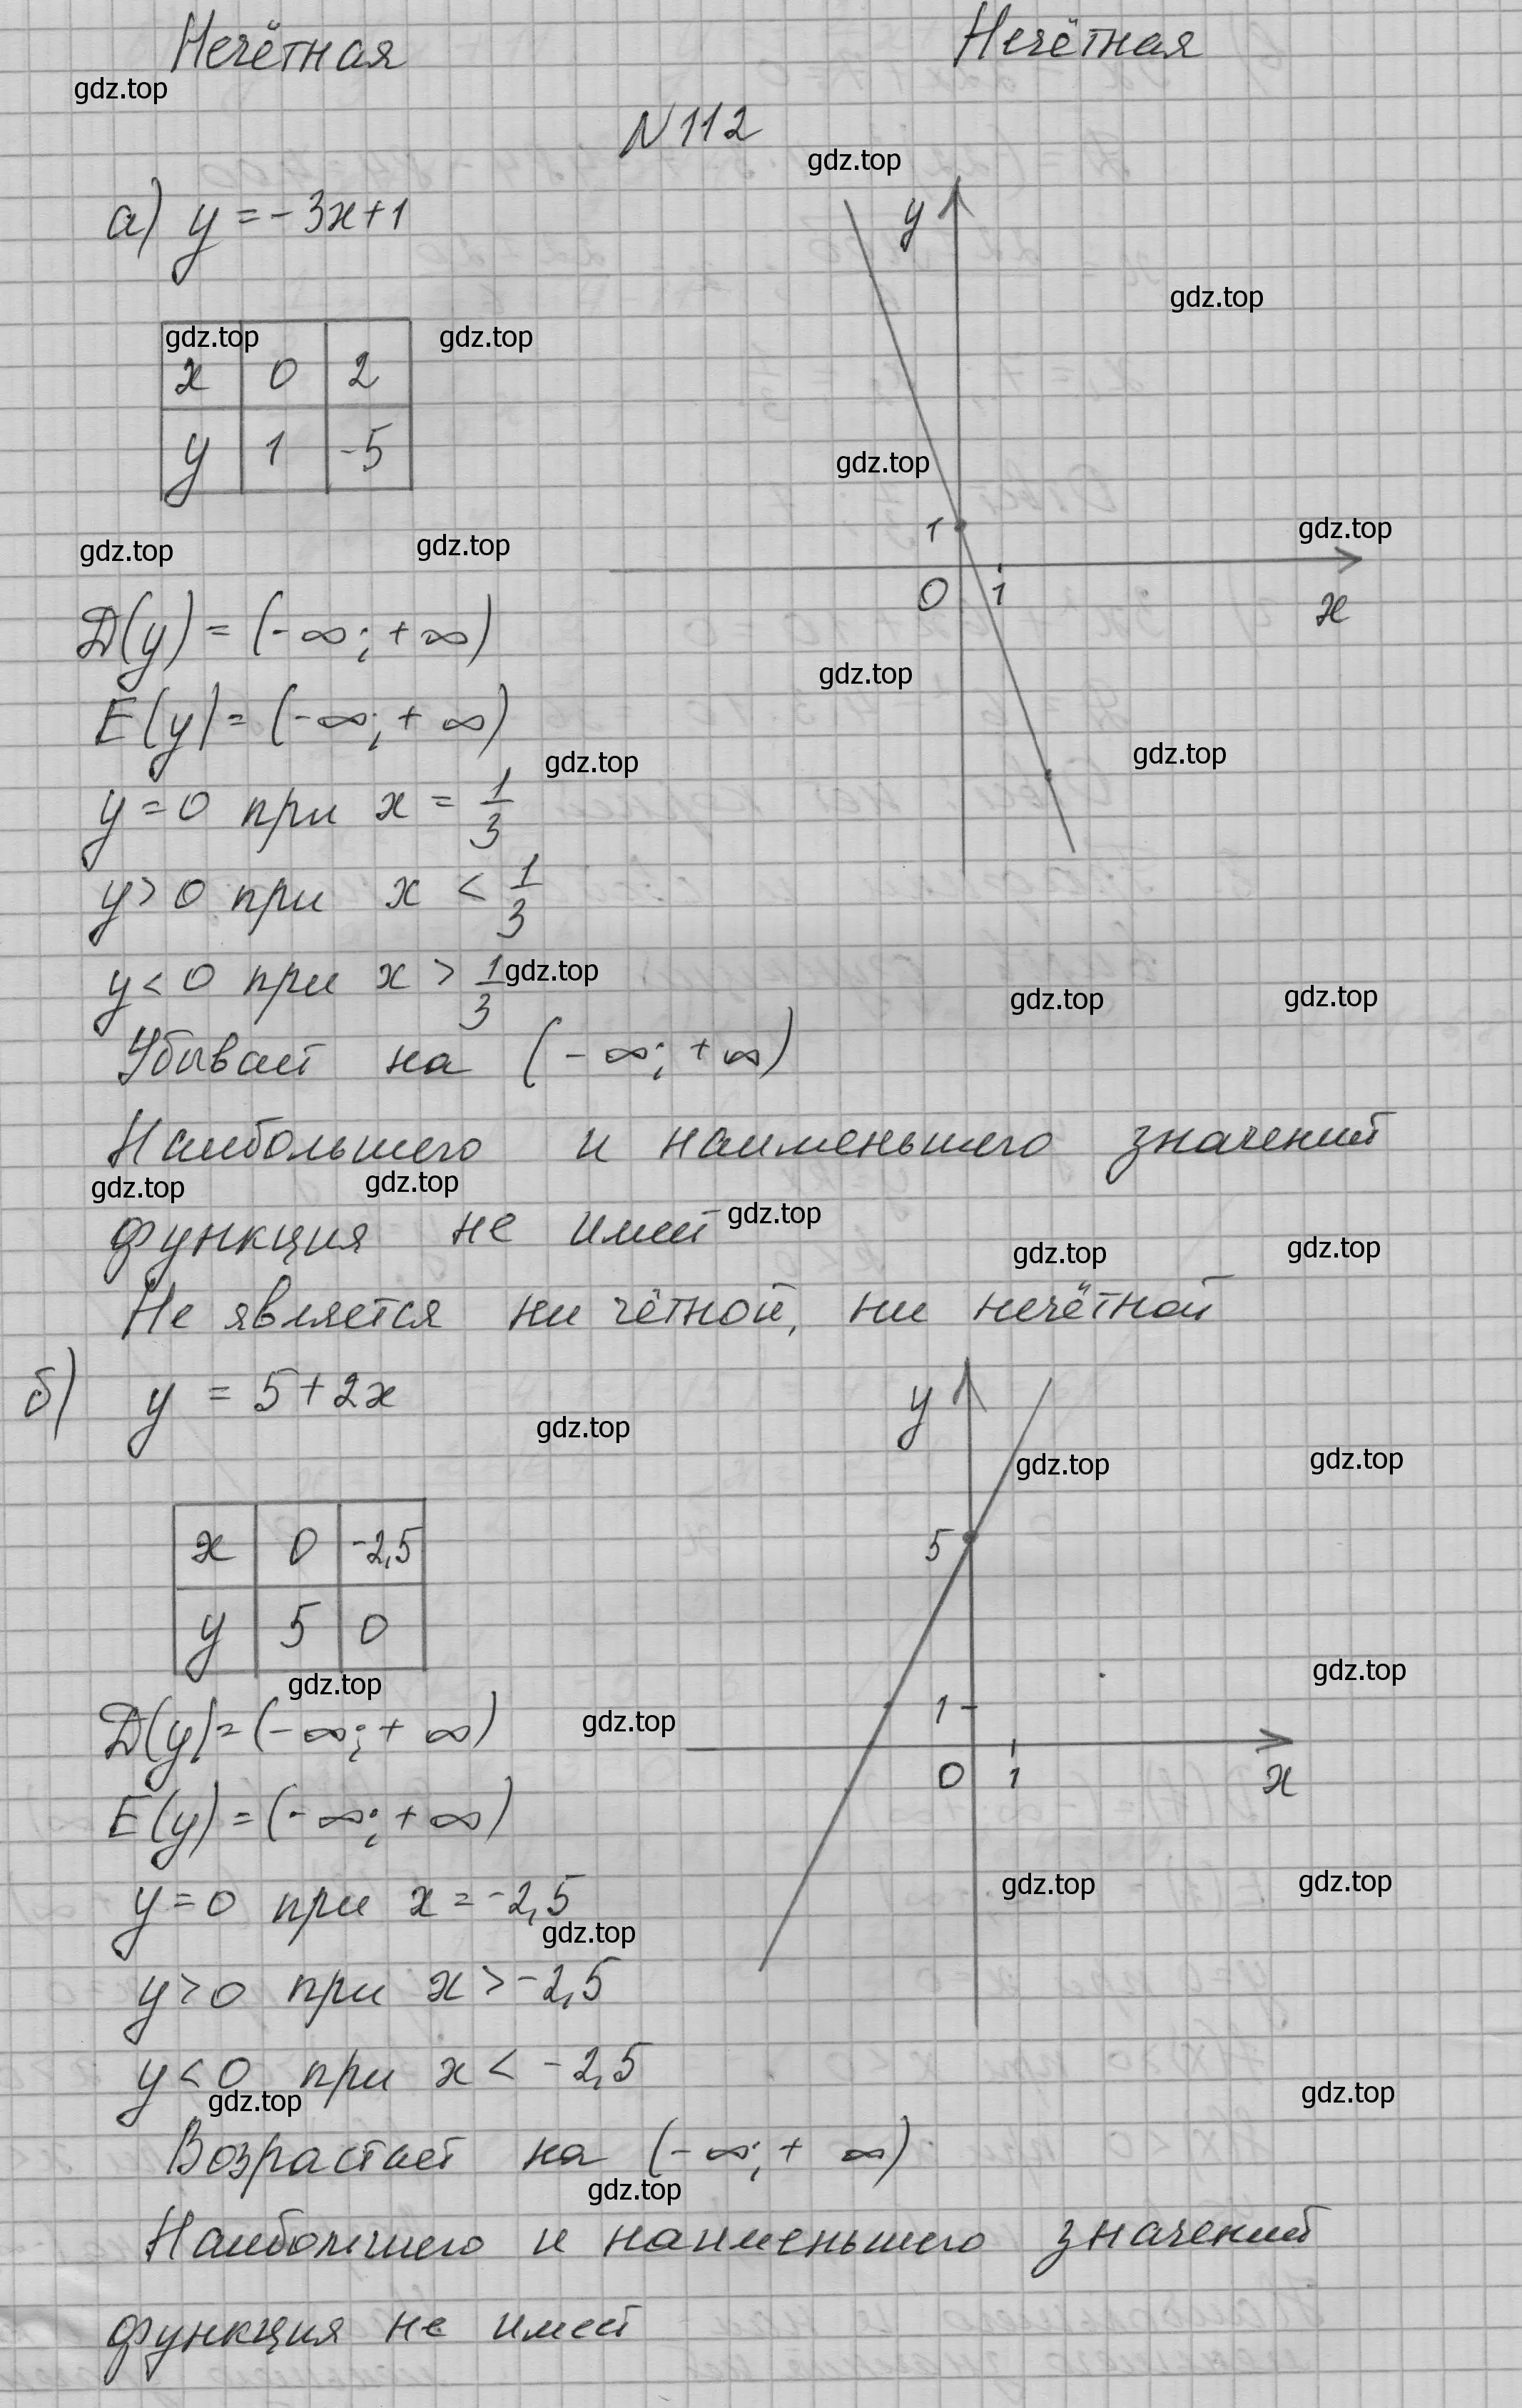 Нечётная Нечётная
gdz.top
N 112
gdz.top
а) y = -3x+1
y
gdz.top
gdz.top gdz.top
x 0 2
y 1 -5
gdz.top
1
gdz.top
gdz.top gdz.top
0 1 x
D(y) = (-∞; +∞)
gdz.top
E(y) = (-∞; +∞)
gdz.top gdz.top
y = 0 при x = 1/3
y > 0 при x < 1/3
y < 0 при x > 1/3
gdz.top
gdz.top gdz.top
Убывает на (-∞; +∞)
Наибольшего и наименьшего значений
gdz.top gdz.top
функция не имеет
gdz.top
gdz.top gdz.top
Не является ни чётной, ни нечётной
б) y = 5+2x
y
gdz.top
gdz.top gdz.top
x 0 -2,5
y 5 0
5
gdz.top gdz.top
D(y) = (-∞; +∞)
gdz.top
1
0 1 x
E(y) = (-∞; +∞)
gdz.top gdz.top
y = 0 при x = -2,5
gdz.top
y > 0 при x > -2,5
y < 0 при x < -2,5
gdz.top gdz.top
Возрастает на (-∞; +∞)
gdz.top
Наибольшего и наименьшего значений
функция не имеет